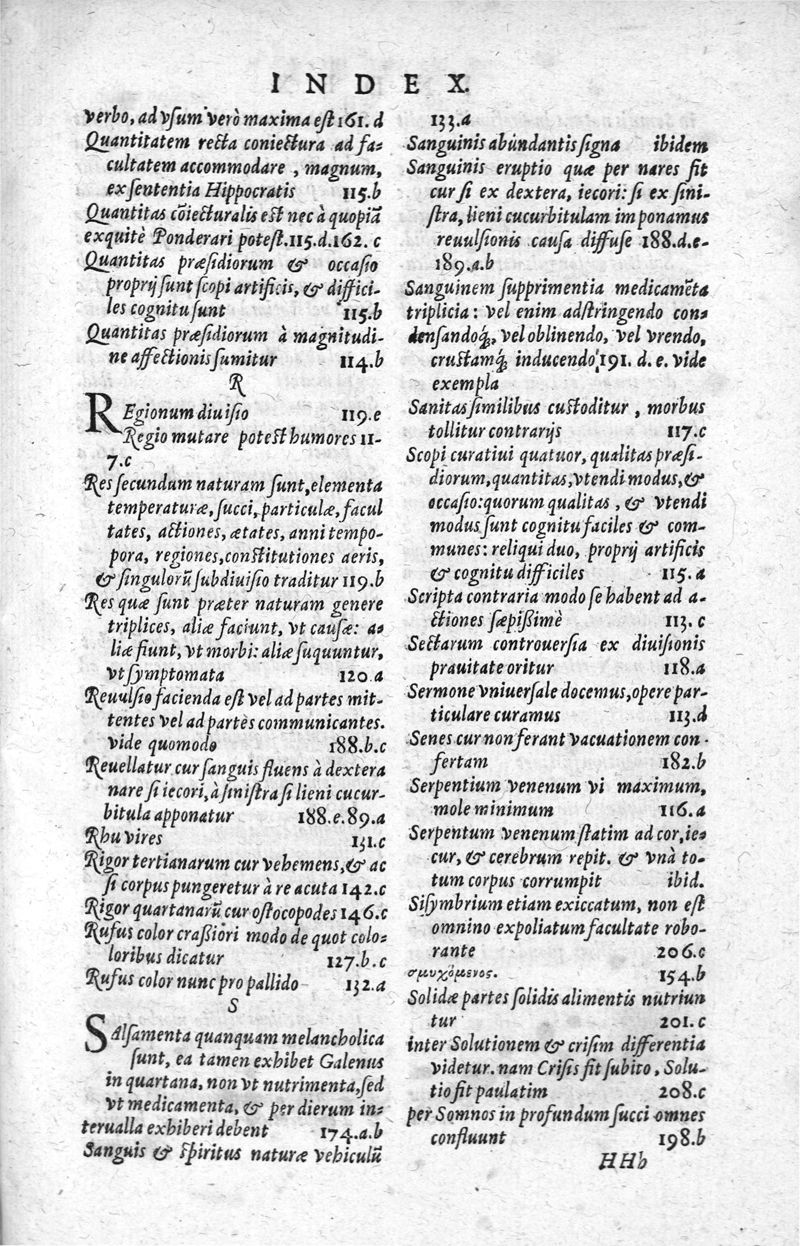 INDEX.
verbo, ad vsum verò maxima est 161.d
Quantitatem recta coniectura ad fa-
cultatem accommodare, magnum,
ex sententia Hippocratis 115.b
Quantitas cõiecturalis est nec à quopiã
exquitè Ponderari potest. 115.d. 162.c
Quantitas præsidiorum & occasio
proprij sunt scopi artificis, & diffici-
les cognitu sunt 115.b
Quantitas præsidiorum à magnitudi-
ne affectionis sumitur 114.b
R
REgionum diuisio 119.e
Regio mutare potest humores 11-
7.c
Res secundum naturam sunt, elementa
temperaturæ, succi, particulæ, facul
tates, actiones, ætates, anni tempo-
pora, regiones, constitutiones aeris,
& singulorũ subdiuisio traditur 119.b
Res quæ sunt præter naturam genere
triplices, aliæ faciunt, vt causæ: a-
liæ fiunt, vt morbi: aliæ suquuntur,
vt symptomata 120.a
Reuulsio facienda est vel ad partes mit-
tentes vel ad partes communicantes.
vide quomodo 188.b.c
Reuellatur cur sanguis fluens à dextera
nare si iecori, à sinistra si lieni cucur-
bitula apponatur 188.e.89.a
Rhu vires 131.c
Rigor tertianarum cur vehemens, & ac
si corpus pungeretur à re acuta 142.c
Rigor quartanarũ cur ostocopodes 146.c
Rufus color craßiori modo de quot colo-
loribus dicatur 127.b.c
Rufus color nunc pro pallido 132.a
S
SAlsamenta quanquam melancholica
sunt, ea tamen exhibet Galenus
in quartana, non vt nutrimenta, sed
vt medicamenta, & per dierum in-
terualla exhiberi debent 174.a.b
Sanguis & spiritus naturæ vehiculũ
133.a
Sanguinis abundantis signa ibidem
Sanguinis eruptio quæ per nares fit
cur si ex dextera, iecori: si ex sini-
stra, lieni cucurbitulam imponamus
reuulsionis causa diffuse 188.d.e-
189.a.b
Sanguinem supprimentia medicamẽta
triplicia: vel enim adstringendo con-
densandoq́;, vel oblinendo, vel vrendo,
crustamq́; inducendo 191. d. e. vide
exempla
Sanitas similibus custoditur, morbus
tollitur contrarijs 117.c
Scopi curatiui quatuor, qualitas præsi-
diorum, quantitas, vtendi modus, &
occasio: quorum qualitas, & vtendi
modus sunt cognitu faciles & com-
munes: reliqui duo, proprij artificis
& cognitu difficiles 115.a
Scripta contraria modo se habent ad a-
ctiones sæpißimè 113.c
Sectarum controuersia ex diuisionis
prauitate oritur 118.a
Sermone vniuersale docemus, opere par-
ticulare curamus 113.d
Senes cur non ferant vacuationem con-
fertam 182.b
Serpentium venenum vi maximum,
mole minimum 116.a
Serpentum venenum statim ad cor, ie-
cur, & cerebrum repit. & vnà to-
tum corpus corrumpit ibid.
Sisymbrium etiam exiccatum, non est
omnino expoliatum facultate robo-
rante 206.c
σμυχόμενος. 154.b
Solidæ partes solidis alimentis nutriun
tur 201.c
inter Solutionem & crisim differentia
videtur. nam Crisis fit subito, Solu-
tio fit paulatim 208.c
per Somnos in profundum succi omnes
confluunt 198.b
HHb